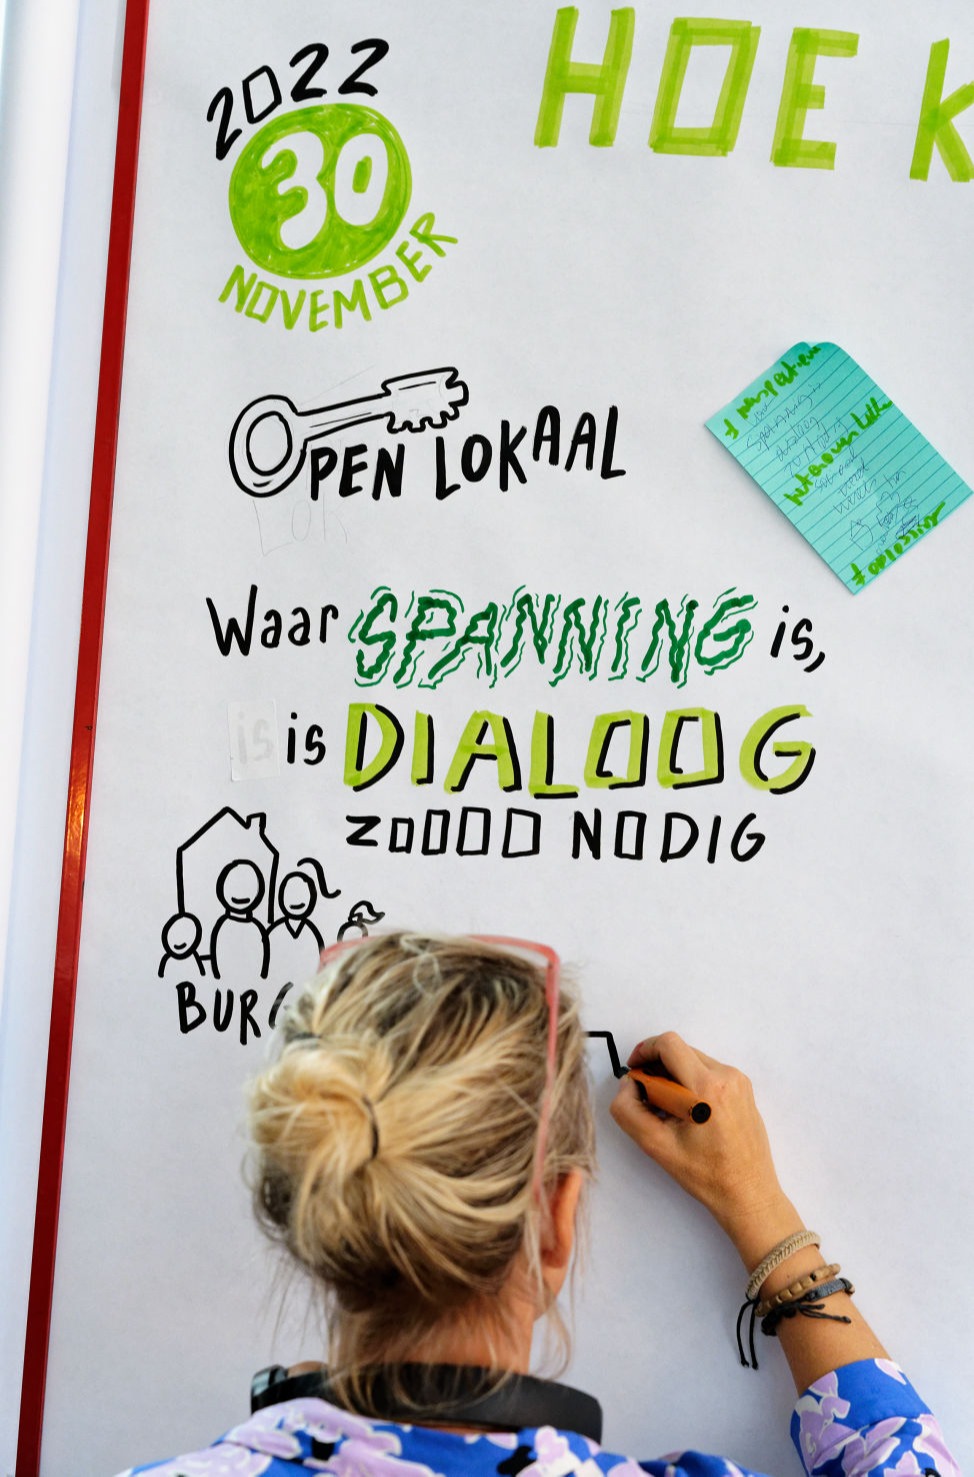 2022
30
NOVEMBER
HOE K
OPEN LOKAAL
LOK
Waar SPANNING is,
is is DIALOOG
ZOOOO NODIG
BURG